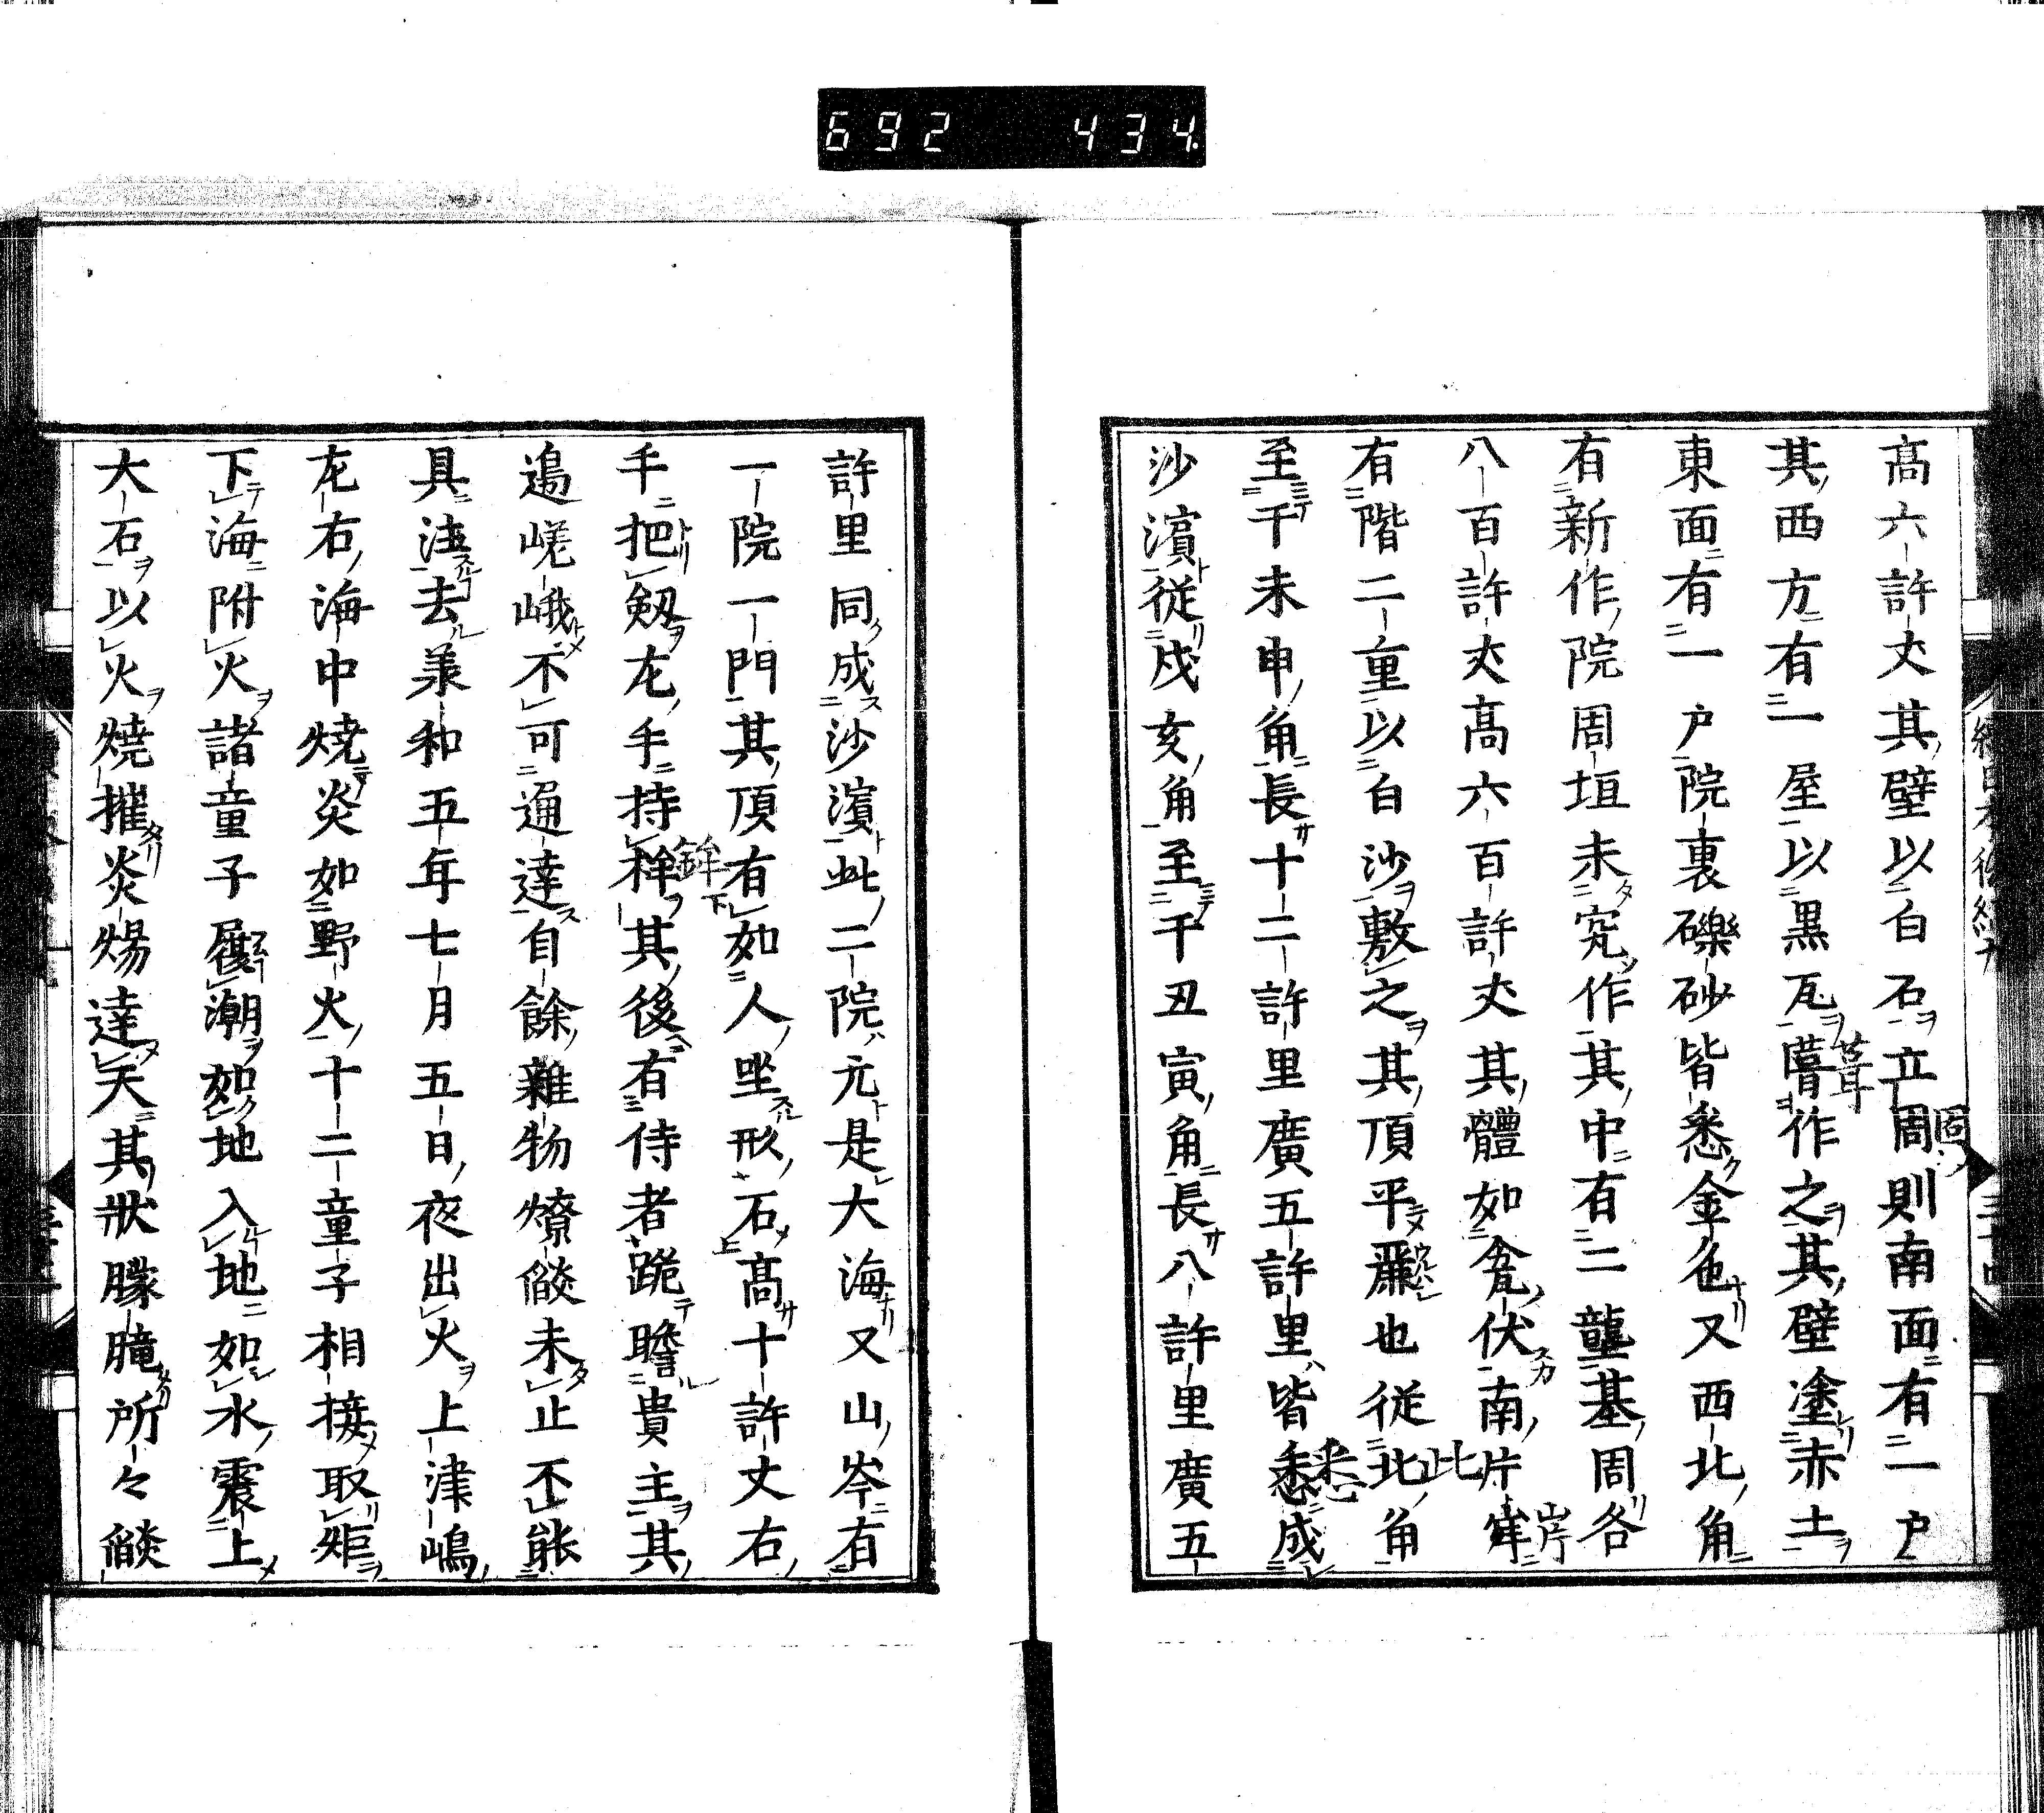 692 434.
高六許丈其壁以白石立周則南面有二户
其西方有一屋以黒瓦葺作之其壁塗赤土
東面有一户院裏礫砂皆悉金色又西北角
有新作院周垣未究作其中有二壟基周各
八百許丈高六百許丈其體如瓫伏南片岸
有階二重以白沙敷之其頂平麗也従北角
至于未申角長十二許里廣五許里皆悉成
沙濱従戌亥角至于丑寅角長八許里廣五
許里同成沙濱此二院元是大海又山岑有
一院一門其頂有如人坐形石高十許丈右
手把剱左手持桙其後有侍者跪瞻貴主其
邉嵯峨不可通達自餘雜物燎燄未止不能
具注去羕和五年七月五日夜出火上津嶋
左右海中焼炎如野火十二童子相接取炬
下海附火諸童子履潮如地入地如水震上
大石以火焼摧炎煬達天其狀朦朣所々燄